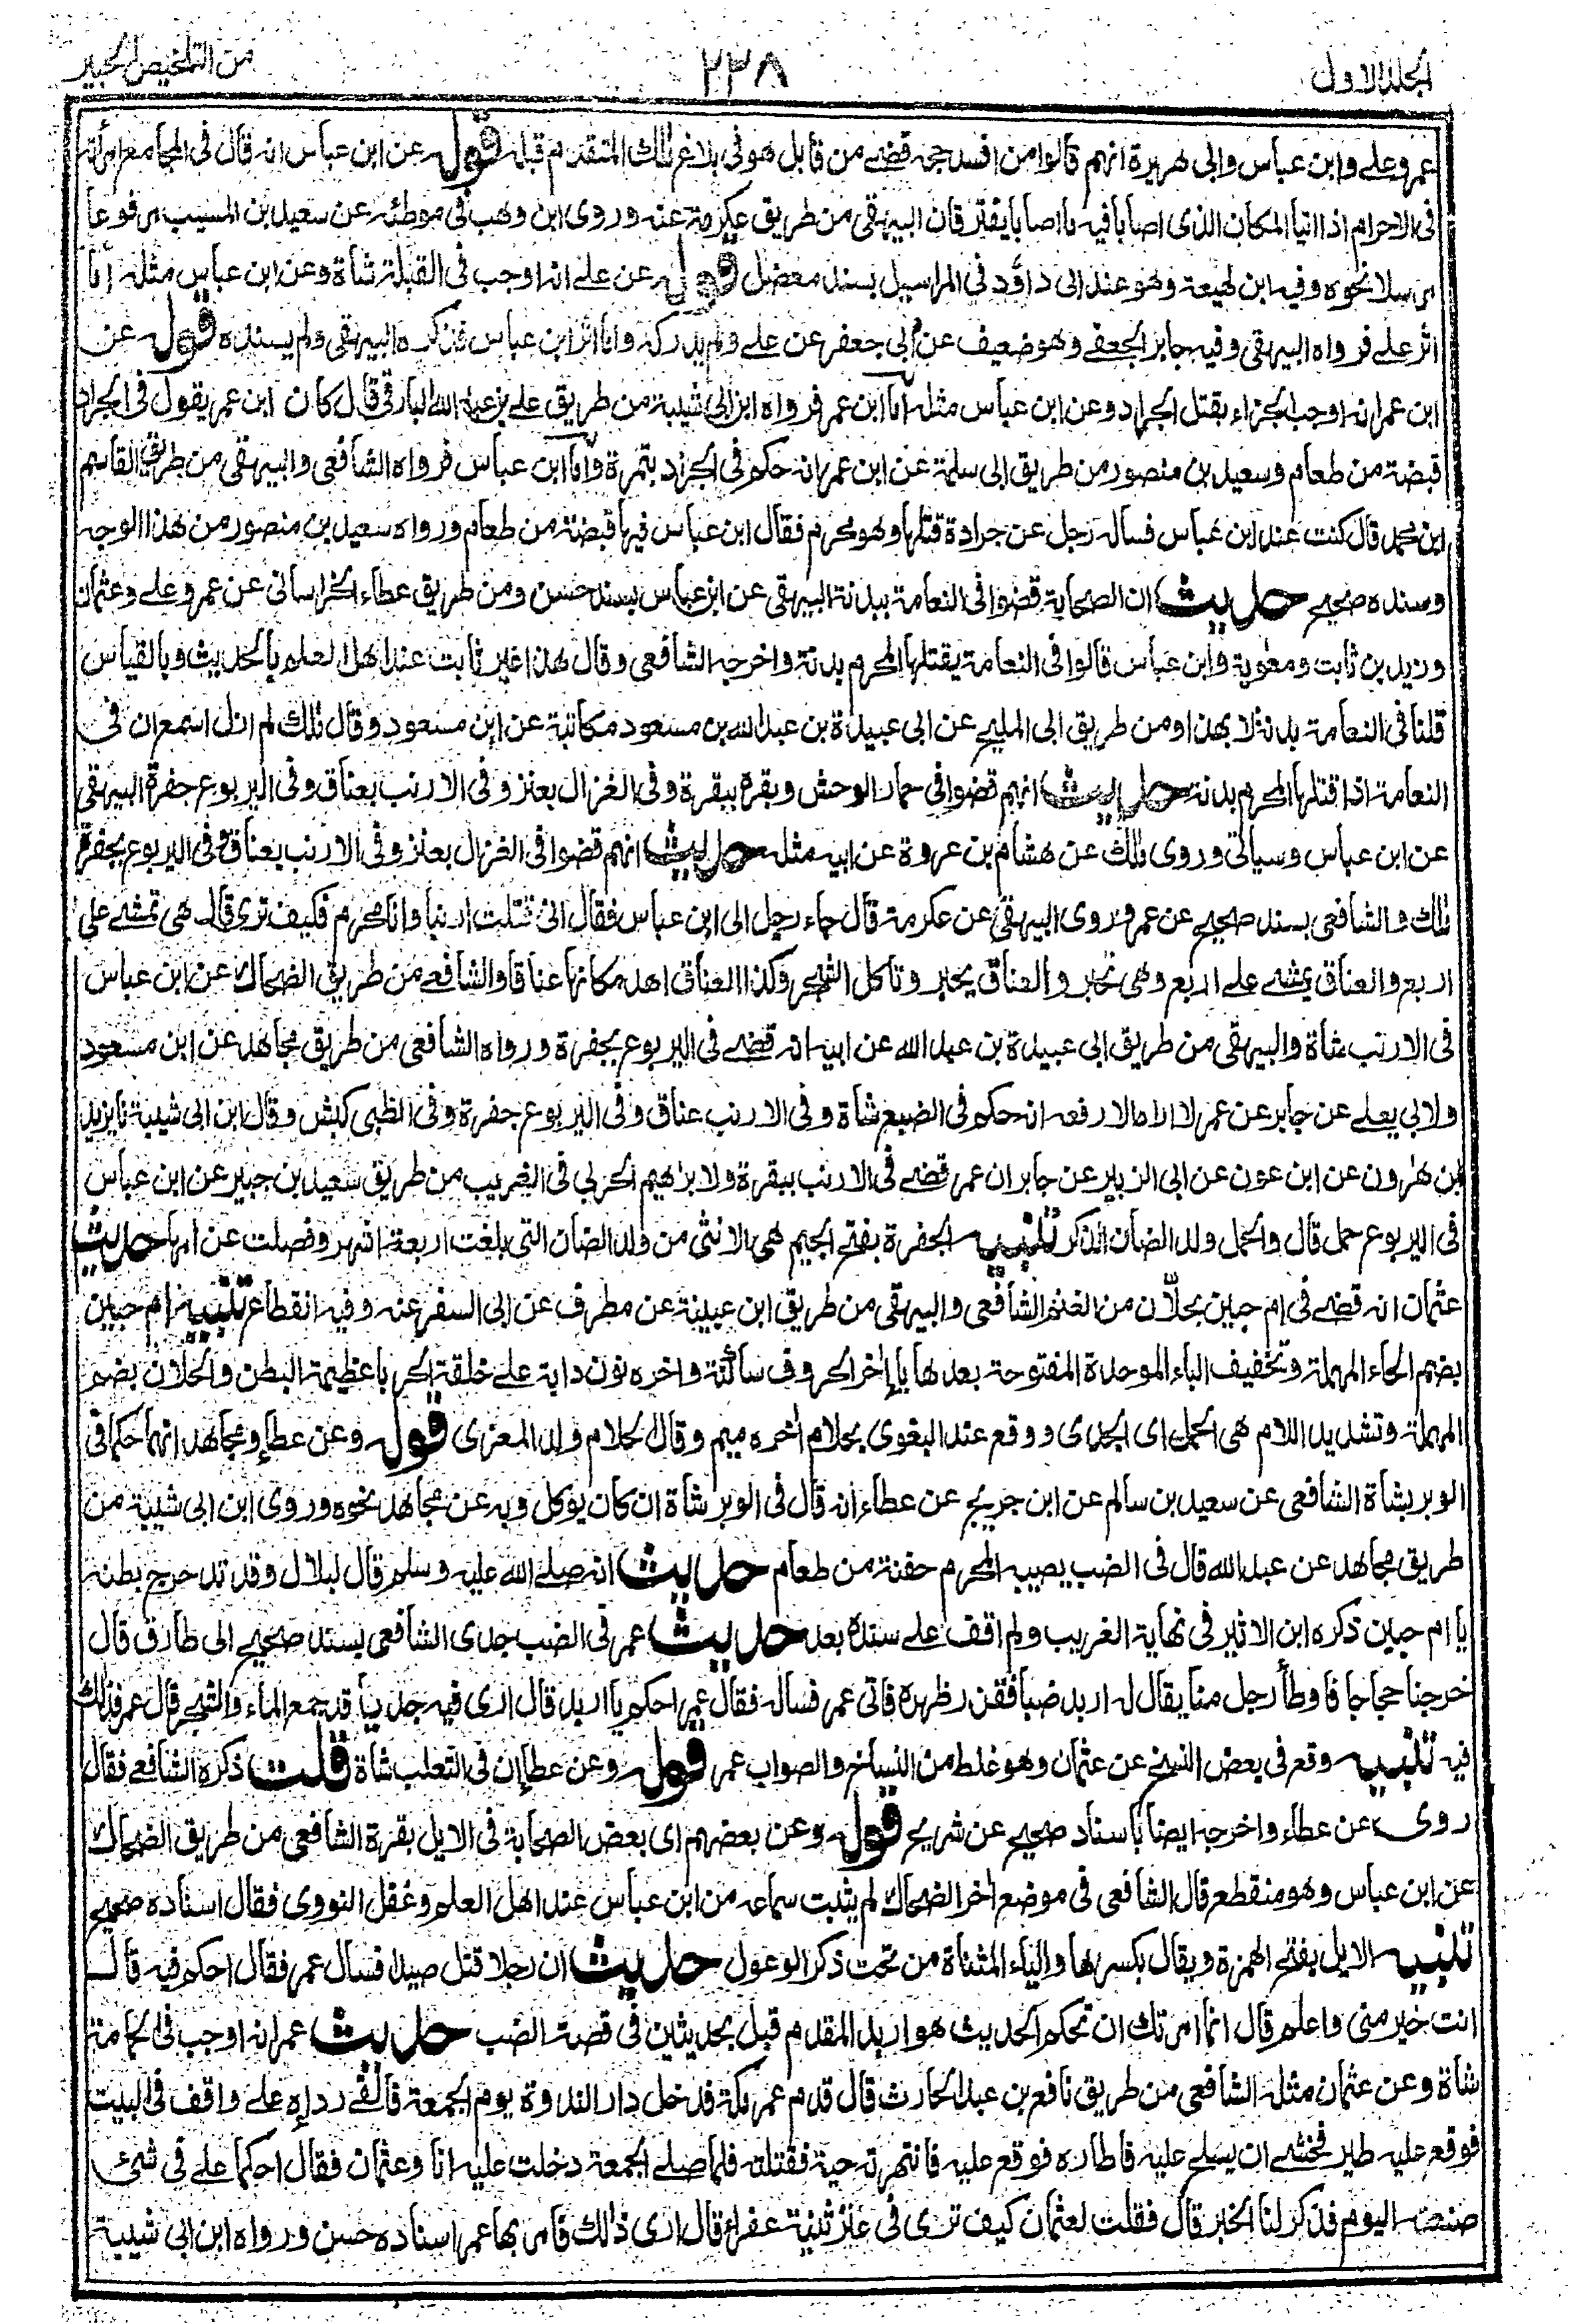 المجلد الاول
٢٣٨
من التلخيص الحبير
عمر وعلے وابن عباس وابی هريرة انهم قالوا من افسد حجه قضے من قابل هو فی بلاغ مالك المتقدم قبله قوله عن ابن عباس انه قال فی المجامع امرأته
فی الاحرام اذا اتيا المكان الذی اصابا فيه ما اصابا يفترقان البيهقی من طريق عكرمة عنه وروی ابن وهب فی موطئه عن سعيد بن المسيب مرفوعا
مرسلا نحوه وفيه ابن لهيعة وهو عند ابی داؤد فی المراسيل بسند معضل قوله عن علے انه اوجب فی القبلة شاة وعن ابن عباس مثله أما
اثر علے فرواه البيهقی وفيه جابر الجعفے وهو ضعيف عن ابی جعفر عن علے ولم يدركه واما اثر ابن عباس فذكره البيهقی ولم يسنده قوله عن
ابن عمر انه اوجب الجزاء بقتل الجراد وعن ابن عباس مثله أما ابن عمر فرواه ابن ابی شيبة من طريق علے بن عبد الله البارقی قال كان ابن عمر يقول فی الجراد
قبضة من طعام وسعيد بن منصور من طريق ابی سلمة عن ابن عمر انه حكم فی الجراد بتمرة وأما ابن عباس فرواه الشافعی والبيهقی من طريق القاسم
ابن محمد قال كنت عند ابن عباس فساله رجل عن جرادة قتلها وهو محرم فقال ابن عباس فيها قبضة من طعام ورواه سعيد بن منصور من هذا الوجه
وسنده صحيح حديث ان الصحابة قضوا فی النعامة ببدنة البيهقی عن ابن عباس بسند حسن ومن طريق عطاء الخراسانی عن عمر وعلے وعثمان
وزيد بن ثابت ومعٰوية وابن عباس قالوا فی النعامة يقتلها المحرم بدنة واخرجه الشافعی وقال هذا غير ثابت عند اهل العلم بالحديث وبالقياس
قلنا فی النعامة بدنة لا بهذا ومن طريق ابی المليح عن ابی عبيدة بن عبد الله بن مسعود مكاتبة عن ابن مسعود وقال مالك لم ازل اسمع ان فی
النعامة اذا قتلها المحرم بدنة حديث انهم قضوا فی حمار الوحش وبقرة ببقرة وفی الغزال بعنز وفی الارنب بعناق وفی اليربوع جفرة البيهقی
عن ابن عباس وسياتی وروی مالك عن هشام بن عروة عن ابيه مثله حديث انهم قضوا فی الغزال بعنز وفی الارنب بعناق وفی اليربوع بجفرة
مالك والشافعی بسند صحيح عن عمر وروی البيهقی عن عكرمة قال جاء رجل الی ابن عباس فقال انی قتلت ارنبا وانا محرم فكيف تری قال هی تمشے علی
اربع والعناق يمشے علے اربع وهی تجتر والعناق يجتر وتاكل الشجر وكذا العناق اهد مكانها عناقا والشافعے من طريق الضحاك عن ابن عباس
فی الارنب شاة والبيهقی من طريق ابی عبيدة بن عبد الله عن ابيه انه قضے فی اليربوع بجفرة ورواه الشافعی من طريق مجاهد عن ابن مسعود
ولابی يعلے عن جابر عن عمر لا اراه الا رفعه انه حكم فی الضبع شاة وفی الارنب عناق وفی اليربوع جفرة وفی الظبی كبش وقال ابن ابی شيبة نا يزيد
بن هٰرون عن ابن عون عن ابی الزبير عن جابر ان عمر قضے فی الارنب ببقرة ولابرٰهيم الحربی فی الغريب من طريق سعيد بن جبير عن ابن عباس
فی اليربوع حمل قال والحمل ولد الضان الذكر تنبيه الجفرة بفتح الجيم هی الانثی من ولد الضان التی بلغت اربعة اشهر وفصلت عن امها حديث
عثمان انه قضے فی ام حبين بحلّان من الغنم الشافعی والبيهقی من طريق ابن عيينة عن مطرف عن ابی السفر عنه وفيه انقطاع تنبيه ام حبين
بضم الحاء المهملة وتخفيف الباء الموحدة المفتوحة بعدها يا اٰخر الحروف ساكنة واخره نون دابة علے خلقة الحربا عظيمة البطن والحلان بضم
المهملة وتشديد اللام هی الحمل ای الجدی ووقع عند البغوی بحلام اٰخره ميم وقال الحلام ولد المعزی قوله وعن عطاء ومجاهد انهما حكما فی
الوبر بشاة الشافعی عن سعيد بن سالم عن ابن جريج عن عطاء انه قال فی الوبر شاة ان كان يوكل وبه عن مجاهد نحوه وروی ابن ابی شيبة من
طريق مجاهد عن عبد الله قال فی الضب يصيبه المحرم حفنة من طعام حديث انه صلے الله عليه وسلم قال لبلال وقد تد حرج بطنه
يا ام حبين ذكره ابن الاثير فی نهاية الغريب ولم اقف علے سنده بعد حديث عمر فی الضب جدی الشافعی بسند صحيح الی طارق قال
خرجنا حجاجا فاوطأ رجل منا يقال له اربد ضبا ففقر ظهره فاتی عمر فساله فقال عمر احكم يا اربد قال اری فيه جديا قد جمع الماء والشجر قال عمر فذلك
فيه تنبيه وقع فی بعض النسخ عن عثمان وهو غلط من النساخ والصواب عمر قوله وعن عطا ان فی الثعلب شاة قلت ذكره الشافعے فقال
روی عن عطاء واخرجه ايضا باسناد صحيح عن شريح قوله وعن بعضهم ای بعض الصحابة فی الايل بقرة الشافعی من طريق الضحاك
عن ابن عباس وهو منقطع قال الشافعی فی موضع اٰخر الضحاك لم يثبت سماعه من ابن عباس عند اهل العلم وغفل النووی فقال اسناده صحيح
تنبيه الايل بفتح الهمزة ويقال بكسرها والياء المثناة من تحت ذكر الوعول حديث ان رجلا قتل صيدا فسال عمر فقال احكم فيه قال
انت خير منی واعلم قال انما امرتك ان تحكم الحديث هو اربد المقدم قبل بحديثين فی قصة الضب حديث عمر انه اوجب فی الحمامة
شاة وعن عثمان مثله الشافعی من طريق نافع بن عبد الحارث قال قدم عمر مكة فدخل دار الندوة يوم الجمعة فالقے رداءه علے واقف فی البيت
فوقع عليه طير فخشے ان يسلح عليه فاطاره فوقع عليه فانتهزته حية فقتلته فلما صلے الجمعة دخلت عليه انا وعثمان فقال احكما علے فی شئ
صنعته اليوم فذكر لنا الخبر قال فقلت لعثمان كيف تری فی عنز ثنية عفراء قال اری ذالك فامر بها عمر اسناده حسن ورواه ابن ابی شيبة